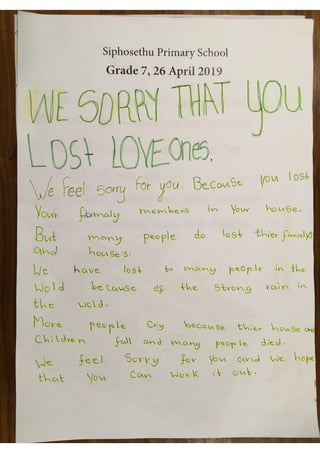 Siphosethu Primary School
Grade 7, 26 April 2019
WE SORRY THAT YOU
LOST LOVE ones.
We Feel sorry for you. Because you lost
Your fiamaly members in Your house.
But many people do lost thier fimalys
and house's.
We have lost to many people in the
Wold because of the strong rain in
the wold.
More people Cry because thier house and
Children fall and many people died.
We feel Sorry for You and we hope
that You Can work it out.